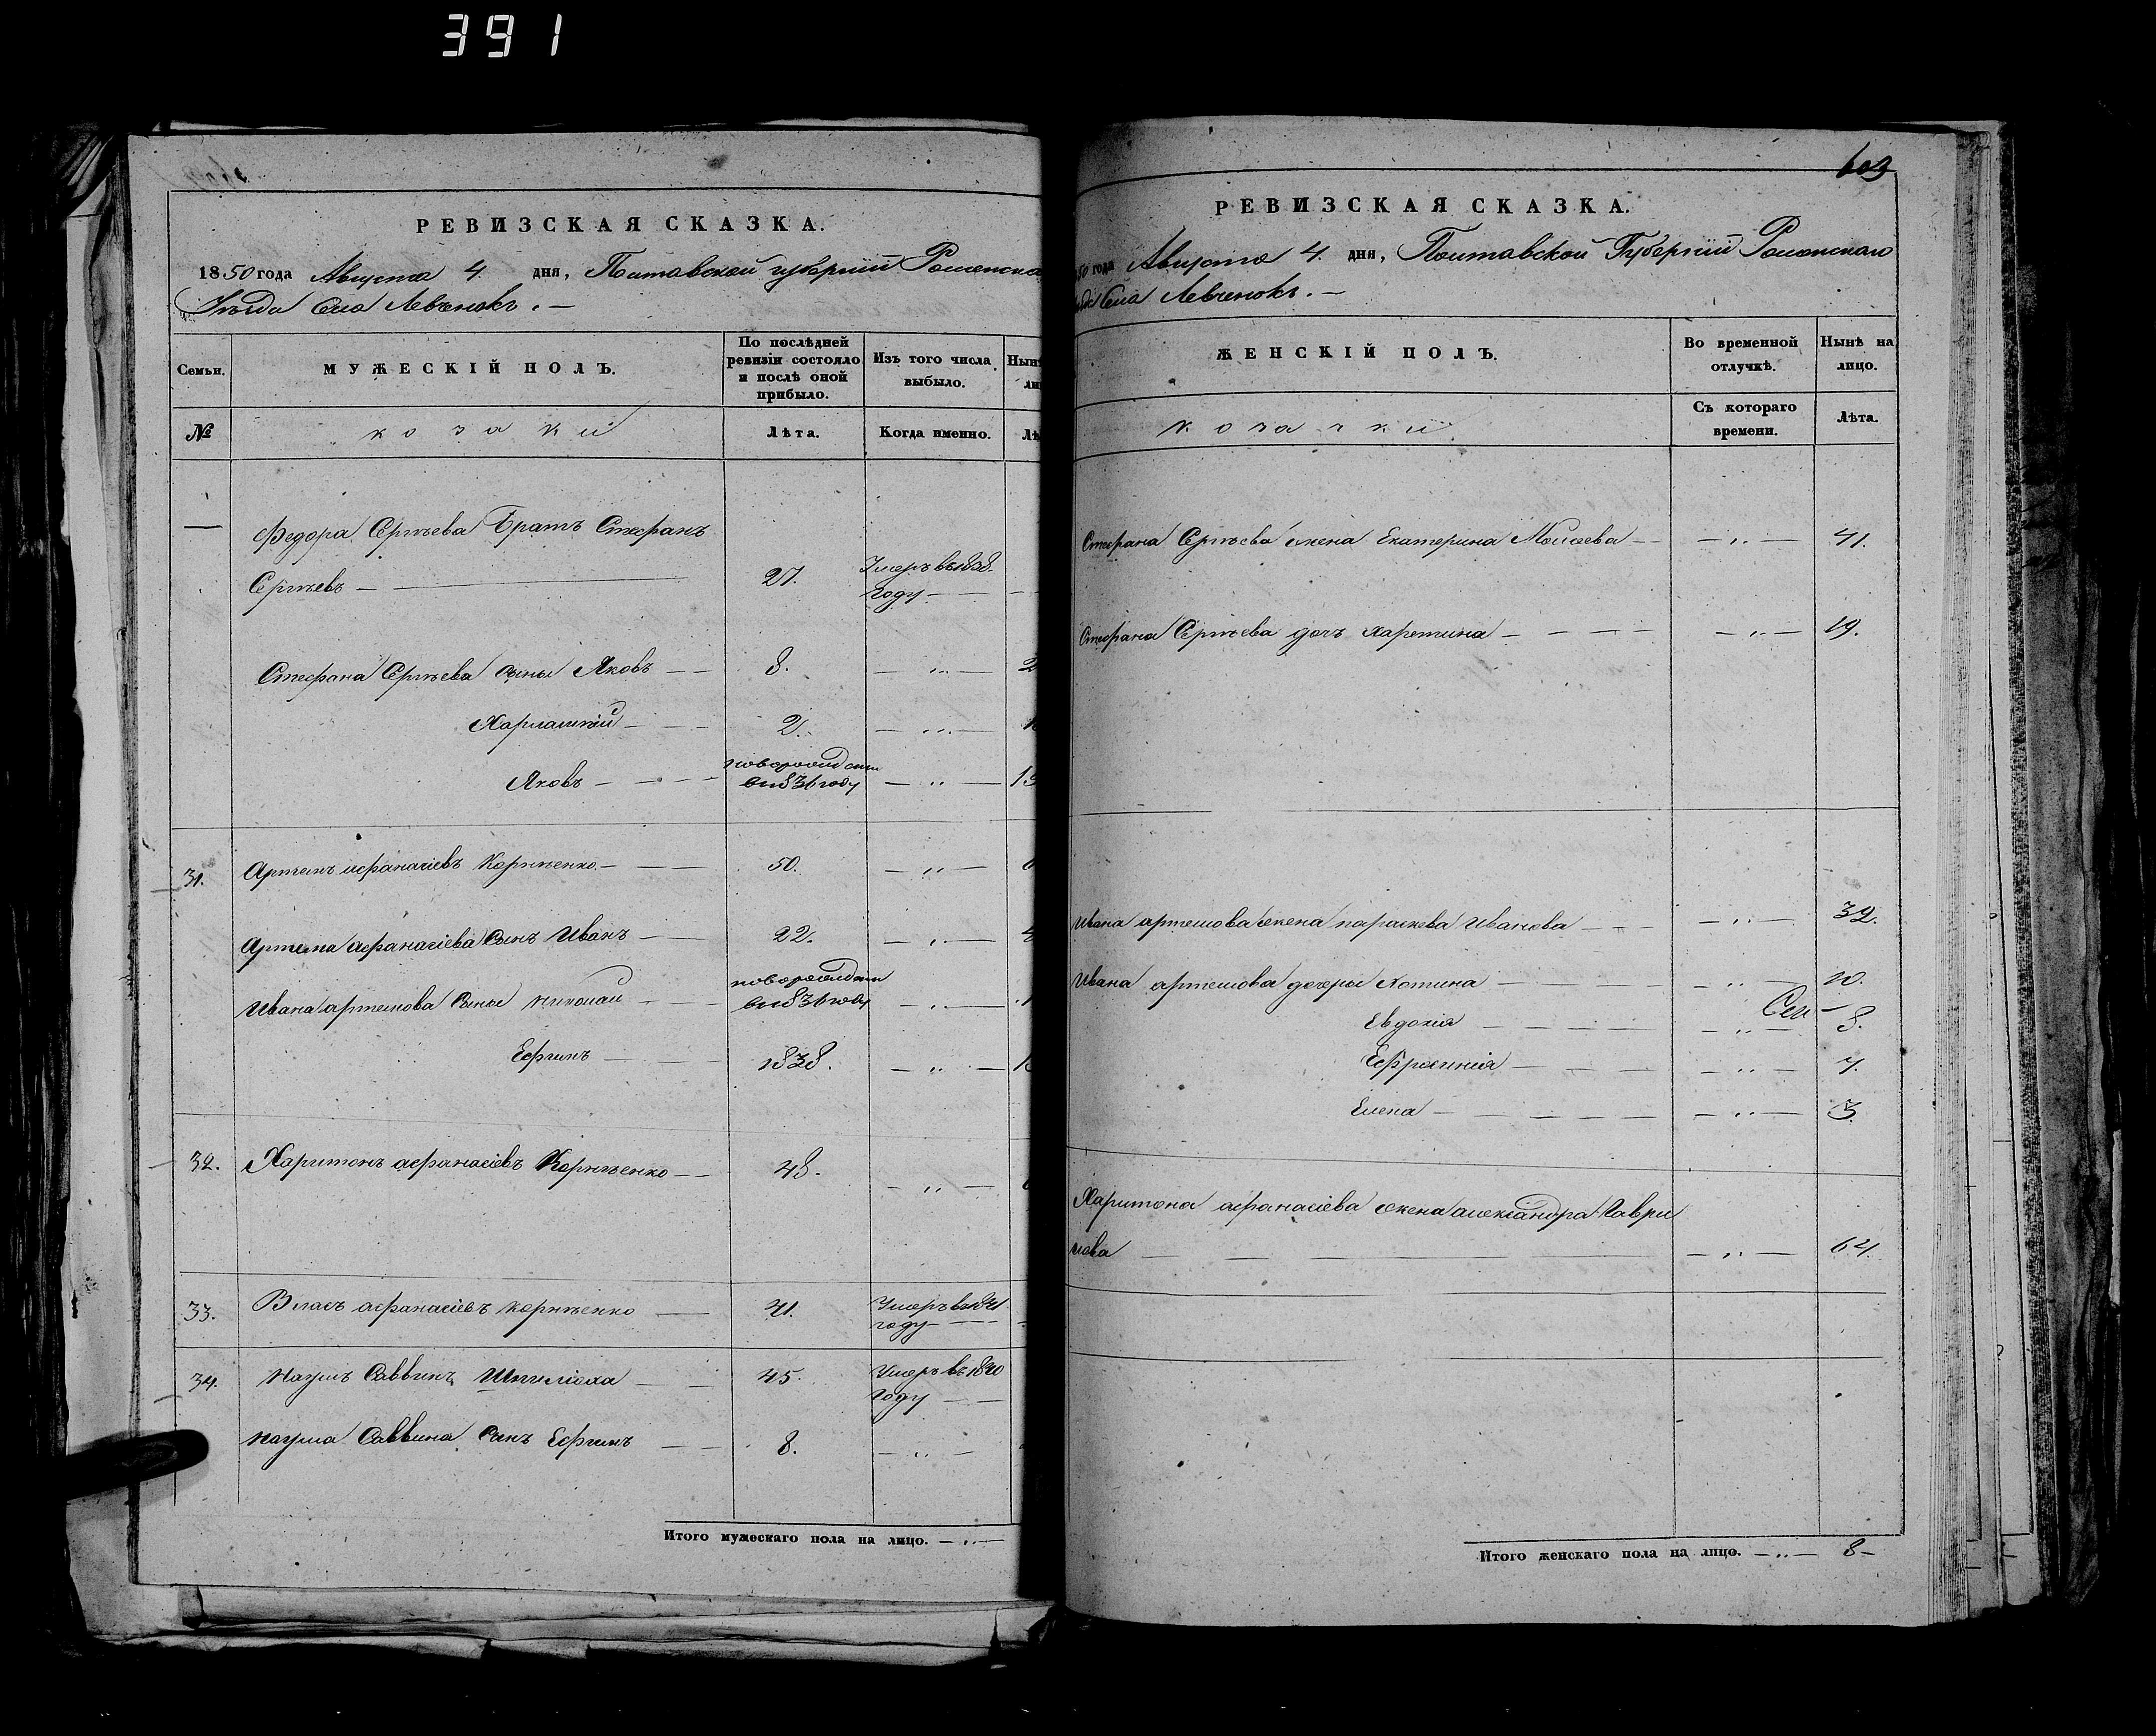 391
РЕВИЗСКАЯ СКАЗКА.
1850 года Августа 4. дня, Полтавской губерніи Роменска
Уѣзда Села Левченокъ. —
Семьи.
МУЖЕСКІЙ ПОЛЪ.
По послѣдней ревизіи состояло и послѣ оной прибыло.
Изъ того числа выбыло.
Нын
№
козаки
Лѣта.
Когда именно.
Федора Сергѣева Братъ Стефанъ
Сергѣевъ — 27. Умеръ в 1838. году —
Стефана Сергѣева сыны Яковъ — 8. — „ — 2
Харлампій — 2. — „ — 1
Яковъ — новорожден в 1836 году — „ — 13
31. Артемъ афанасіевъ Корнѣенко. — 50. — „ —
Артема афанасіева Сынъ Иванъ — 22. — „ — 4
Ивана артемова Сыны николай — новорожден в 1836 году — „ — 1
Ефимъ — 1838. — „ — 1
32. Харитонъ афанасіевъ Корнѣенко — 48. — „ —
33. Власъ афанасіевъ корнѣенко — 41. Умеръ в 1841 году —
34. Наумъ Саввинъ — 45. Умеръ въ 1840 году —
Наума Саввина Сынъ Ефимъ — 8. — „ —
Итого мужескаго пола на лицо. — „ —
603
РЕВИЗСКАЯ СКАЗКА.
50 года Августа 4. дня, Полтавской Губерніи Роменскаго
Села Левченокъ. —
ЖЕНСКІЙ ПОЛЪ.
Во временной отлучкѣ.
Нынѣ на лицо.
козачки
Съ котораго времени.
Лѣта.
Стефана Сергѣева жена Екатерина Моисеева — — „ — 41.
Стефана Сергѣева дочь харетина — — „ — 19.
Ивана артемова жена параскева Иванова — — „ — 32.
Ивана артемова дочеры — — „ — 10.
Евдокія — — „ — 8.
Ефросинія — — „ — 7.
Елена — — „ — 3.
Харитона афанасіева жена александра Гаври
лова — — „ — 64.
Итого женскаго пола на лицо. — „ — 8 —